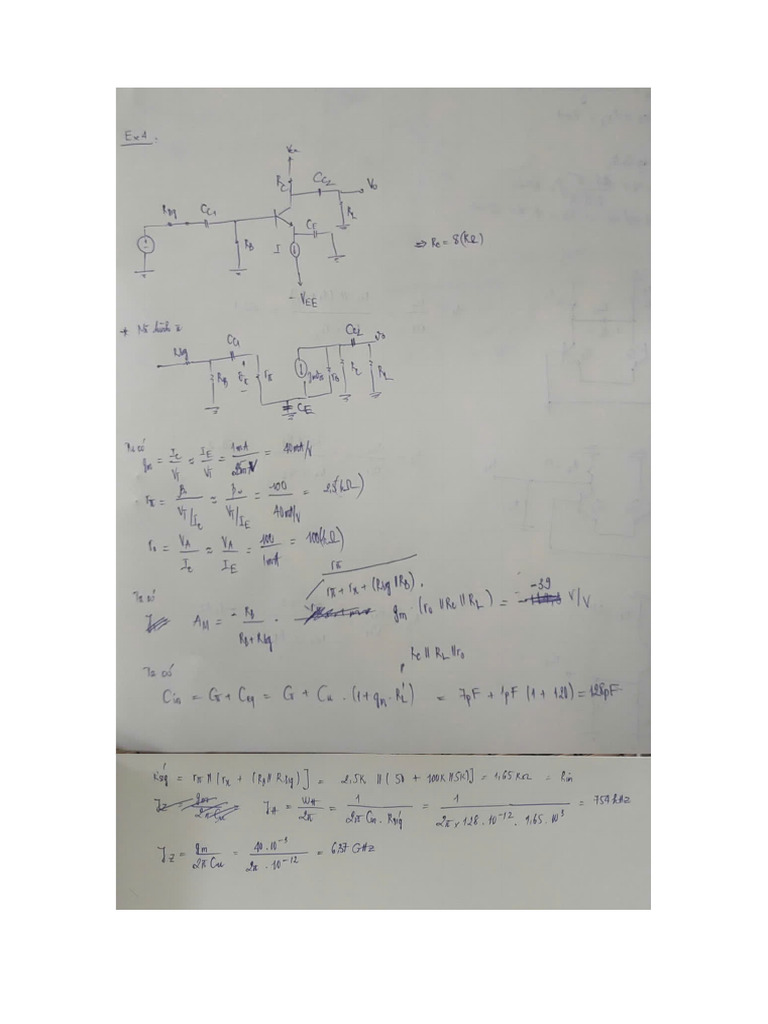 Ex4.
Vcc
Rc CC2 Vo
Rsig CC1 RL
CE
RB I
⇒ Rc = 8(KΩ)
- VEE
* Mô hình π
CC1 CC2 Vo
Rsig
RB vπ rπ gmvπ ro Rc RL
CE
Ta có
gm = Ic/VT ≈ IE/VT = 1mA/25mV = 40mA/V
rπ = β/VT/Ic ≈ β/VT/IE = 100/40mA/V = 2,5(kΩ)
ro = VA/Ic ≈ VA/IE = 100/1mA = 100(kΩ)
Ta có AM = - RB/RB+Rsig . rπ/rπ+rx+(Rsig||RB) . gm . (ro || Rc || RL) = -39 V/V
Rc || RL || ro
Ta có
Cin = Cπ + Ceq = Cπ + Cu . (1+gm . R'L) = 7pF + 1pF (1 + 120) = 128pF
R'sig = rπ || (rx + (RB || Rsig)] = 2.5K || (50 + 100K || 5K)] = 1,65 KΩ = Rin
fH = WH/2π = 1/2π Cin . R'sig = 1/2π x 128 . 10⁻¹² . 1,65 . 10³ = 754 kHz
fZ = gm/2π Cu = 40 . 10⁻³/2π . 10⁻¹² = 6.37 GHz